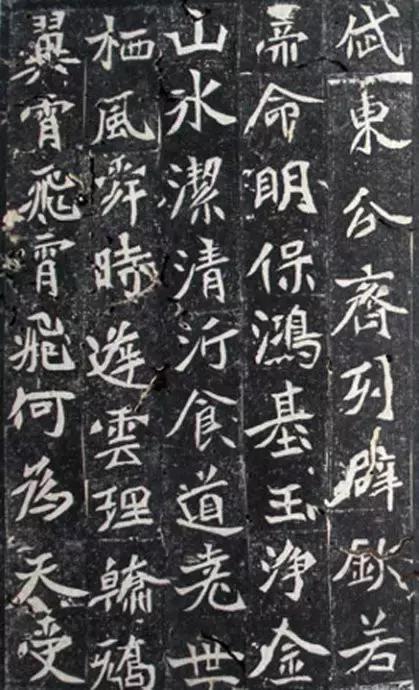 東公齊列辟欽若
帝命明保鴻基玉淨金
山水潔清沂食道堯世
栖風舜時遊雲理翰矯
翼霄飛霄飛何為天受